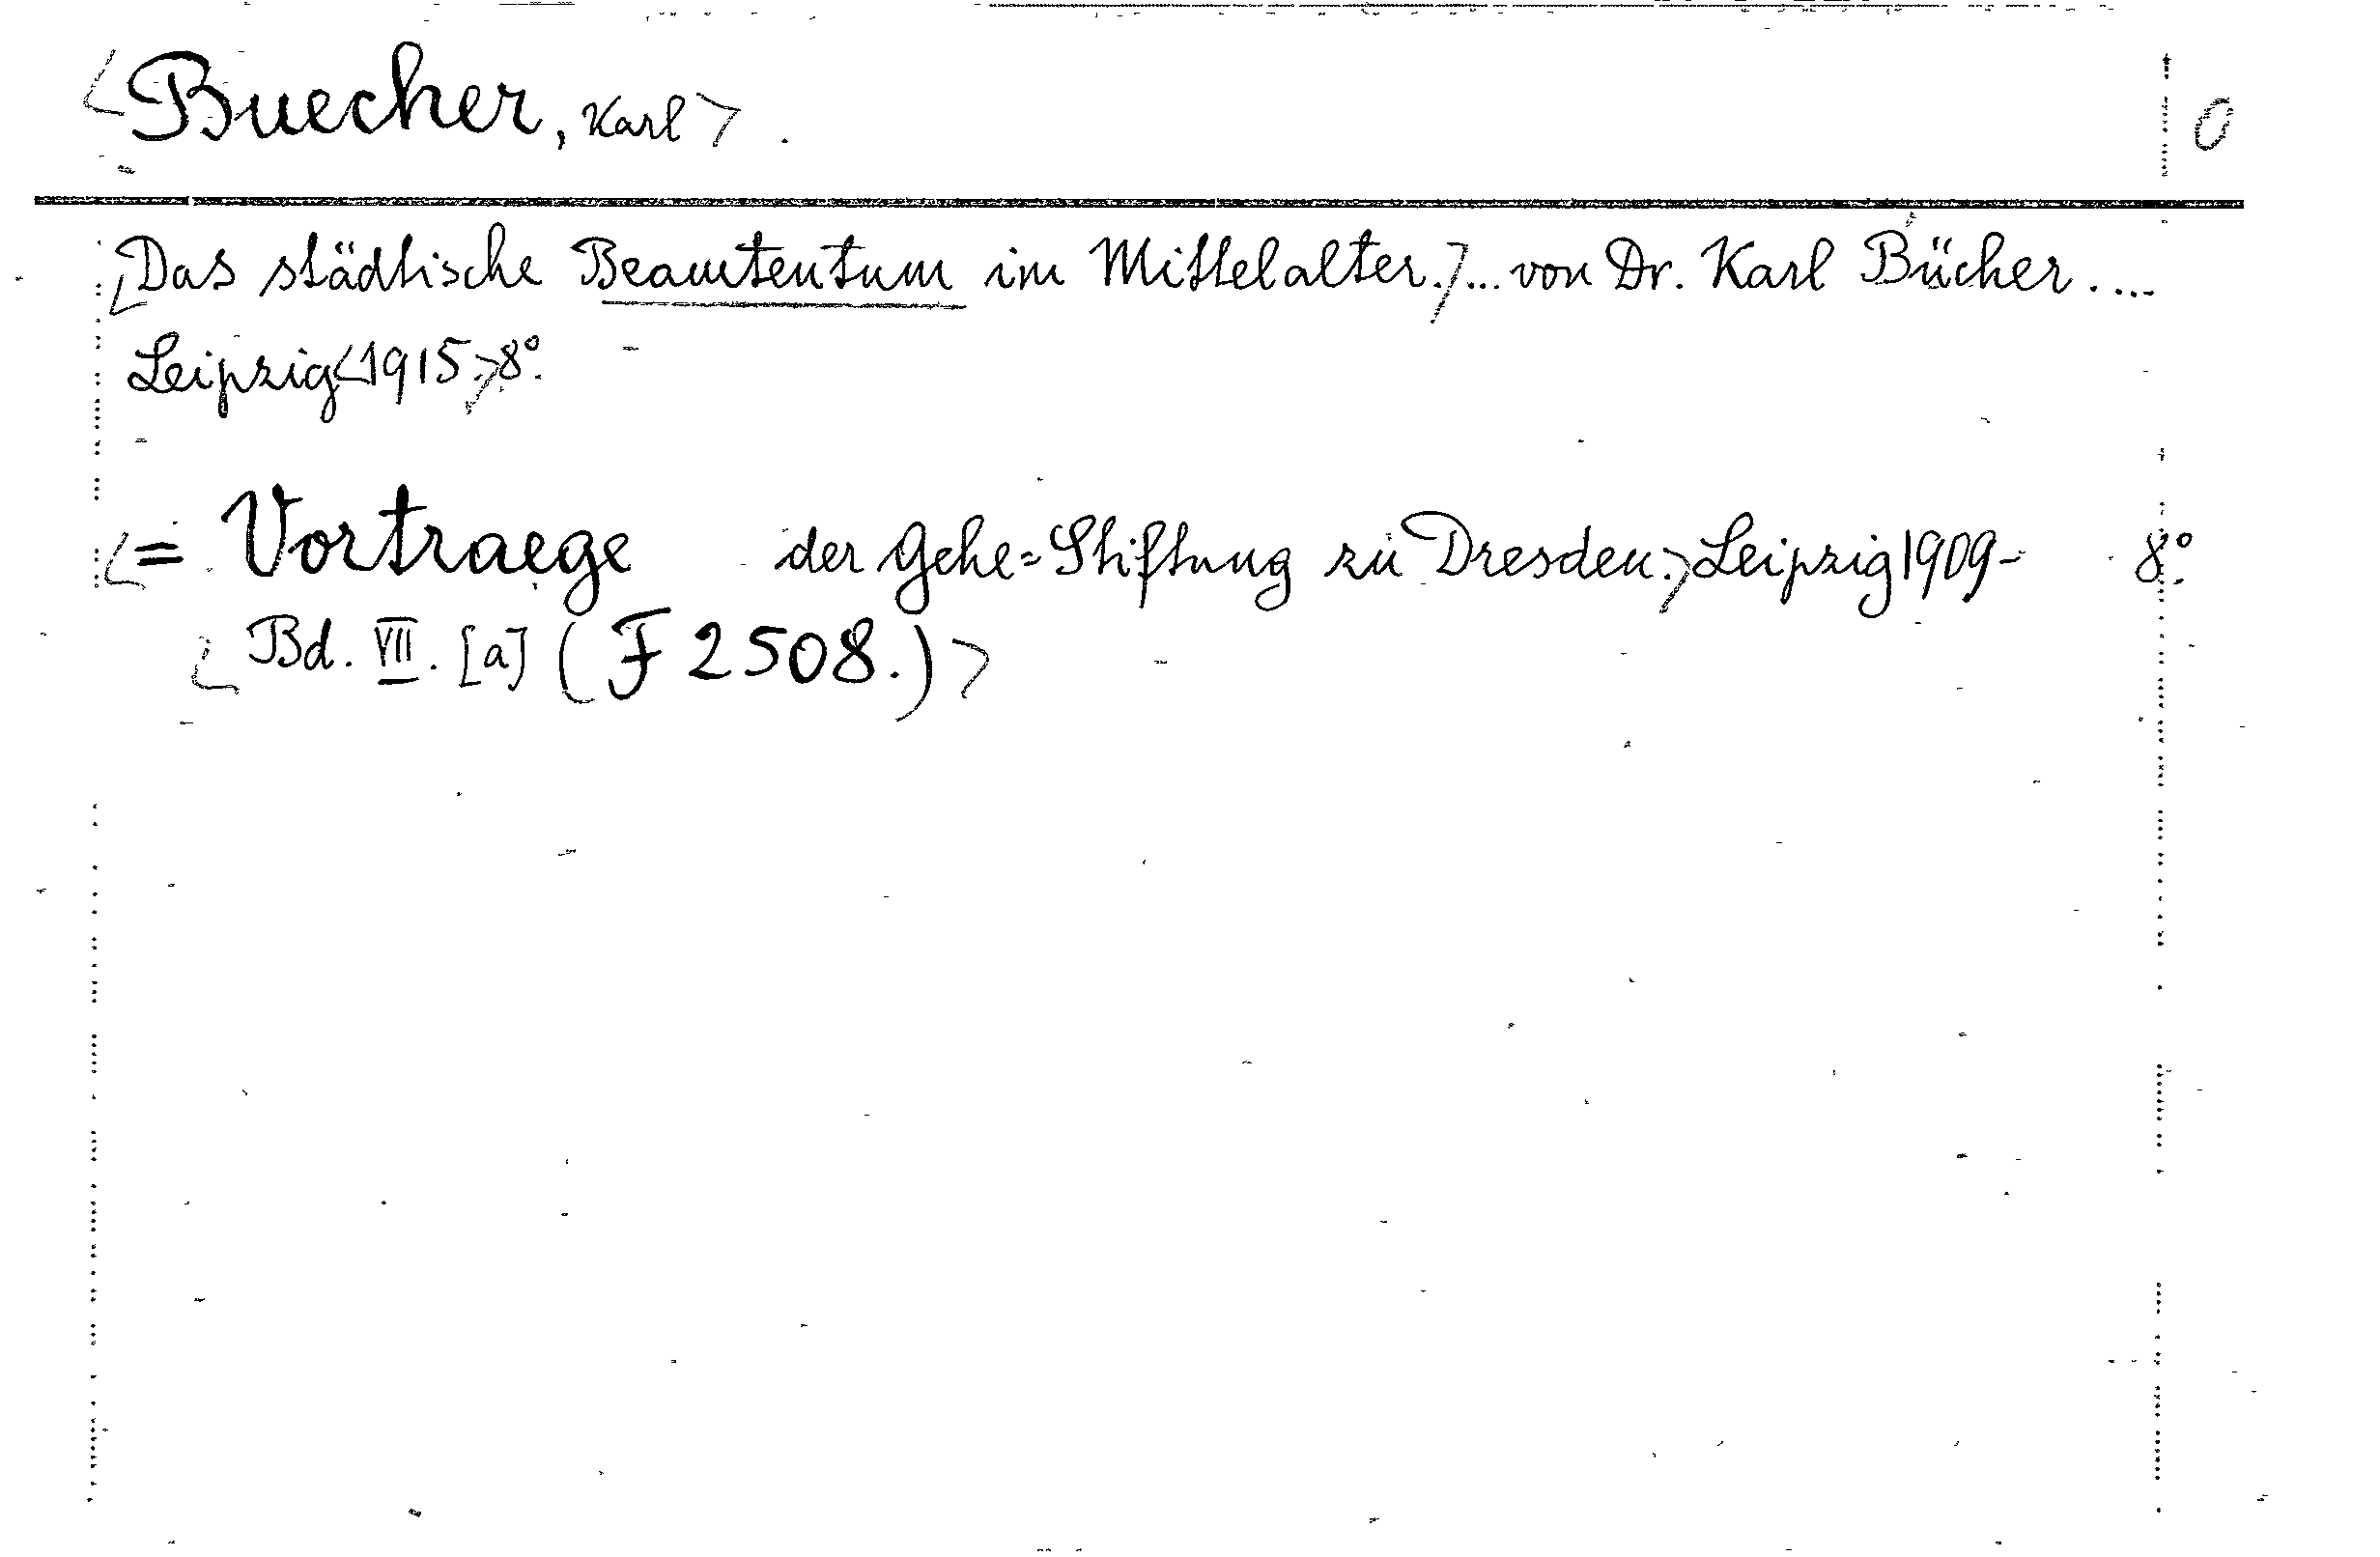 <Buecher, Karl>. 0
<Das städtische Beamtentum im Mittelalter.>... von Dr. Karl Bücher. ...
Leipzig<1915.>8°.
<= Vortraege der Gehe=Stiftung zu Dresden.>Leipzig 1909- 8°.
<Bd. VII. [a] (F 2508.)>